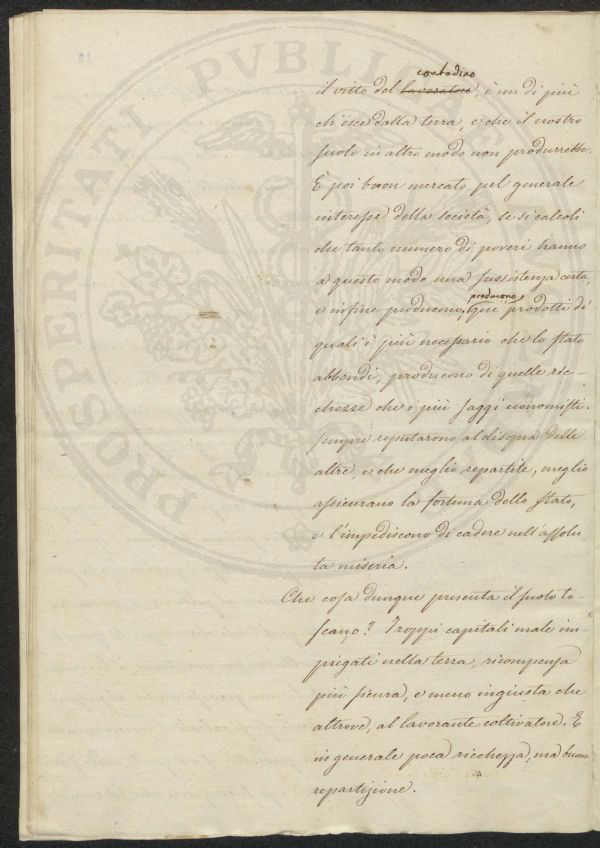 PROSPERITATI PVBLICAE
contadino
il vitto del lavoratore, è un di più
ch'esce dalla terra, e che il nostro
suolo in altro modo non produrrebbe.
È poi buon mercato pel generale
interesse della società, se si calcoli
che tanto numero di poveri hanno
a questo modo una sussistenza certa,
producono
e infine producono, que' prodotti de'
quali è più necessario che lo stato
abbondi, producono di quelle ric-
chezze che i più saggi economisti
sempre reputarono al disopra delle
altre, e che meglio repartite, meglio
assicurano la fortuna dello stato,
e l'impediscono di cadere nell'assolu
ta miseria.
Che cosa dunque presenta il suolo to-
scano? Troppi capitali male im-
piegati nella terra, ricompensa
più sicura, e meno ingiusta che
altrove, al lavorante coltivatore. E
in generale poca ricchezza, ma buona
repartizione.